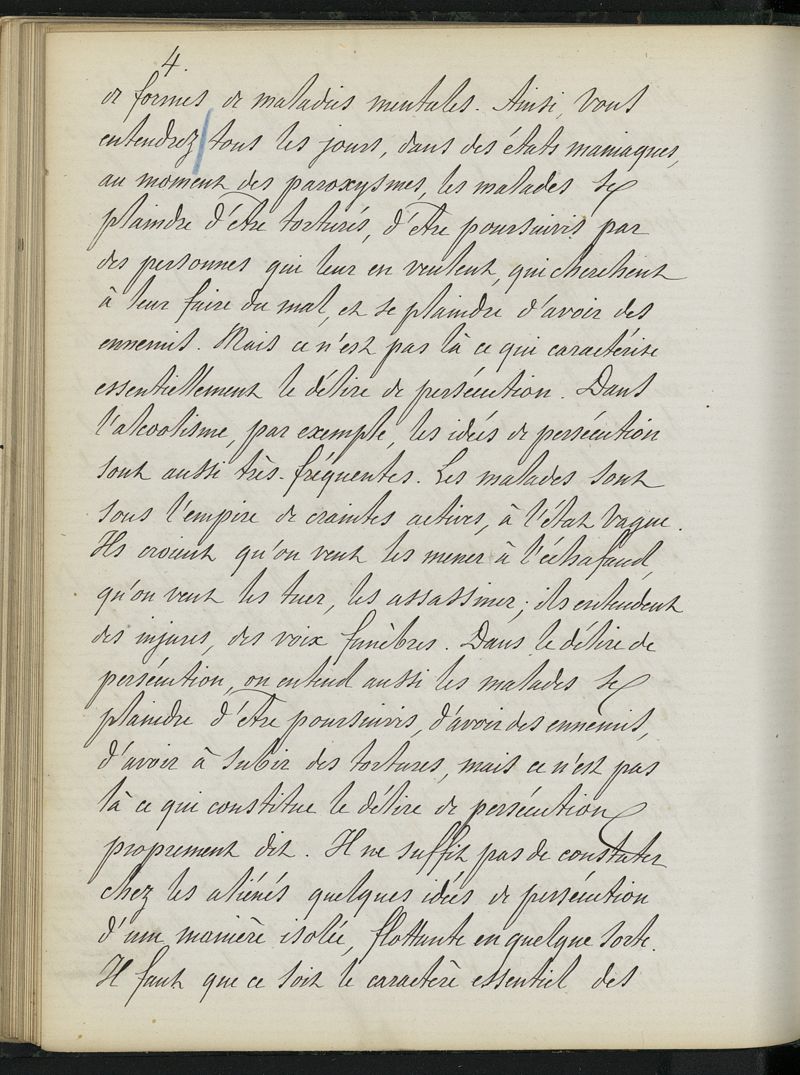 4.
de formes de maladies mentales. Ainsi, vous
entendrez tous les jours, dans des états maniaques,
au moment des paroxysmes, les malades se
plaindre d'être torturés, d'être poursuivis par
des personnes qui leur en veulent, qui cherchent
à leur faire du mal, et se plaindre d'avoir des
ennemis. Mais ce n'est pas là ce qui caractérise
essentiellement le délire de persécution. Dans
l'alcoolisme, par exemple, les idées de persécution
sont aussi très-fréquentes. Les malades sont
sous l'empire de craintes actives, à l'état vague.
Ils croient qu'on veut les mener à l'échafaud,
qu'on veut les tuer, les assassiner; ils entendent
des injures, des voix funèbres. Dans le délire de
persécution, on entend aussi les malades se
plaindre d'être poursuivis, d'avoir des ennemis,
d'avoir à subir des tortures, mais ce n'est pas
là ce qui constitue le délire de persécution
proprement dit. Il ne suffit pas de constater
chez les aliénés quelques idées de persécution
d'une manière isolée, flottante en quelque sorte.
Il faut que ce soit le caractère essentiel des